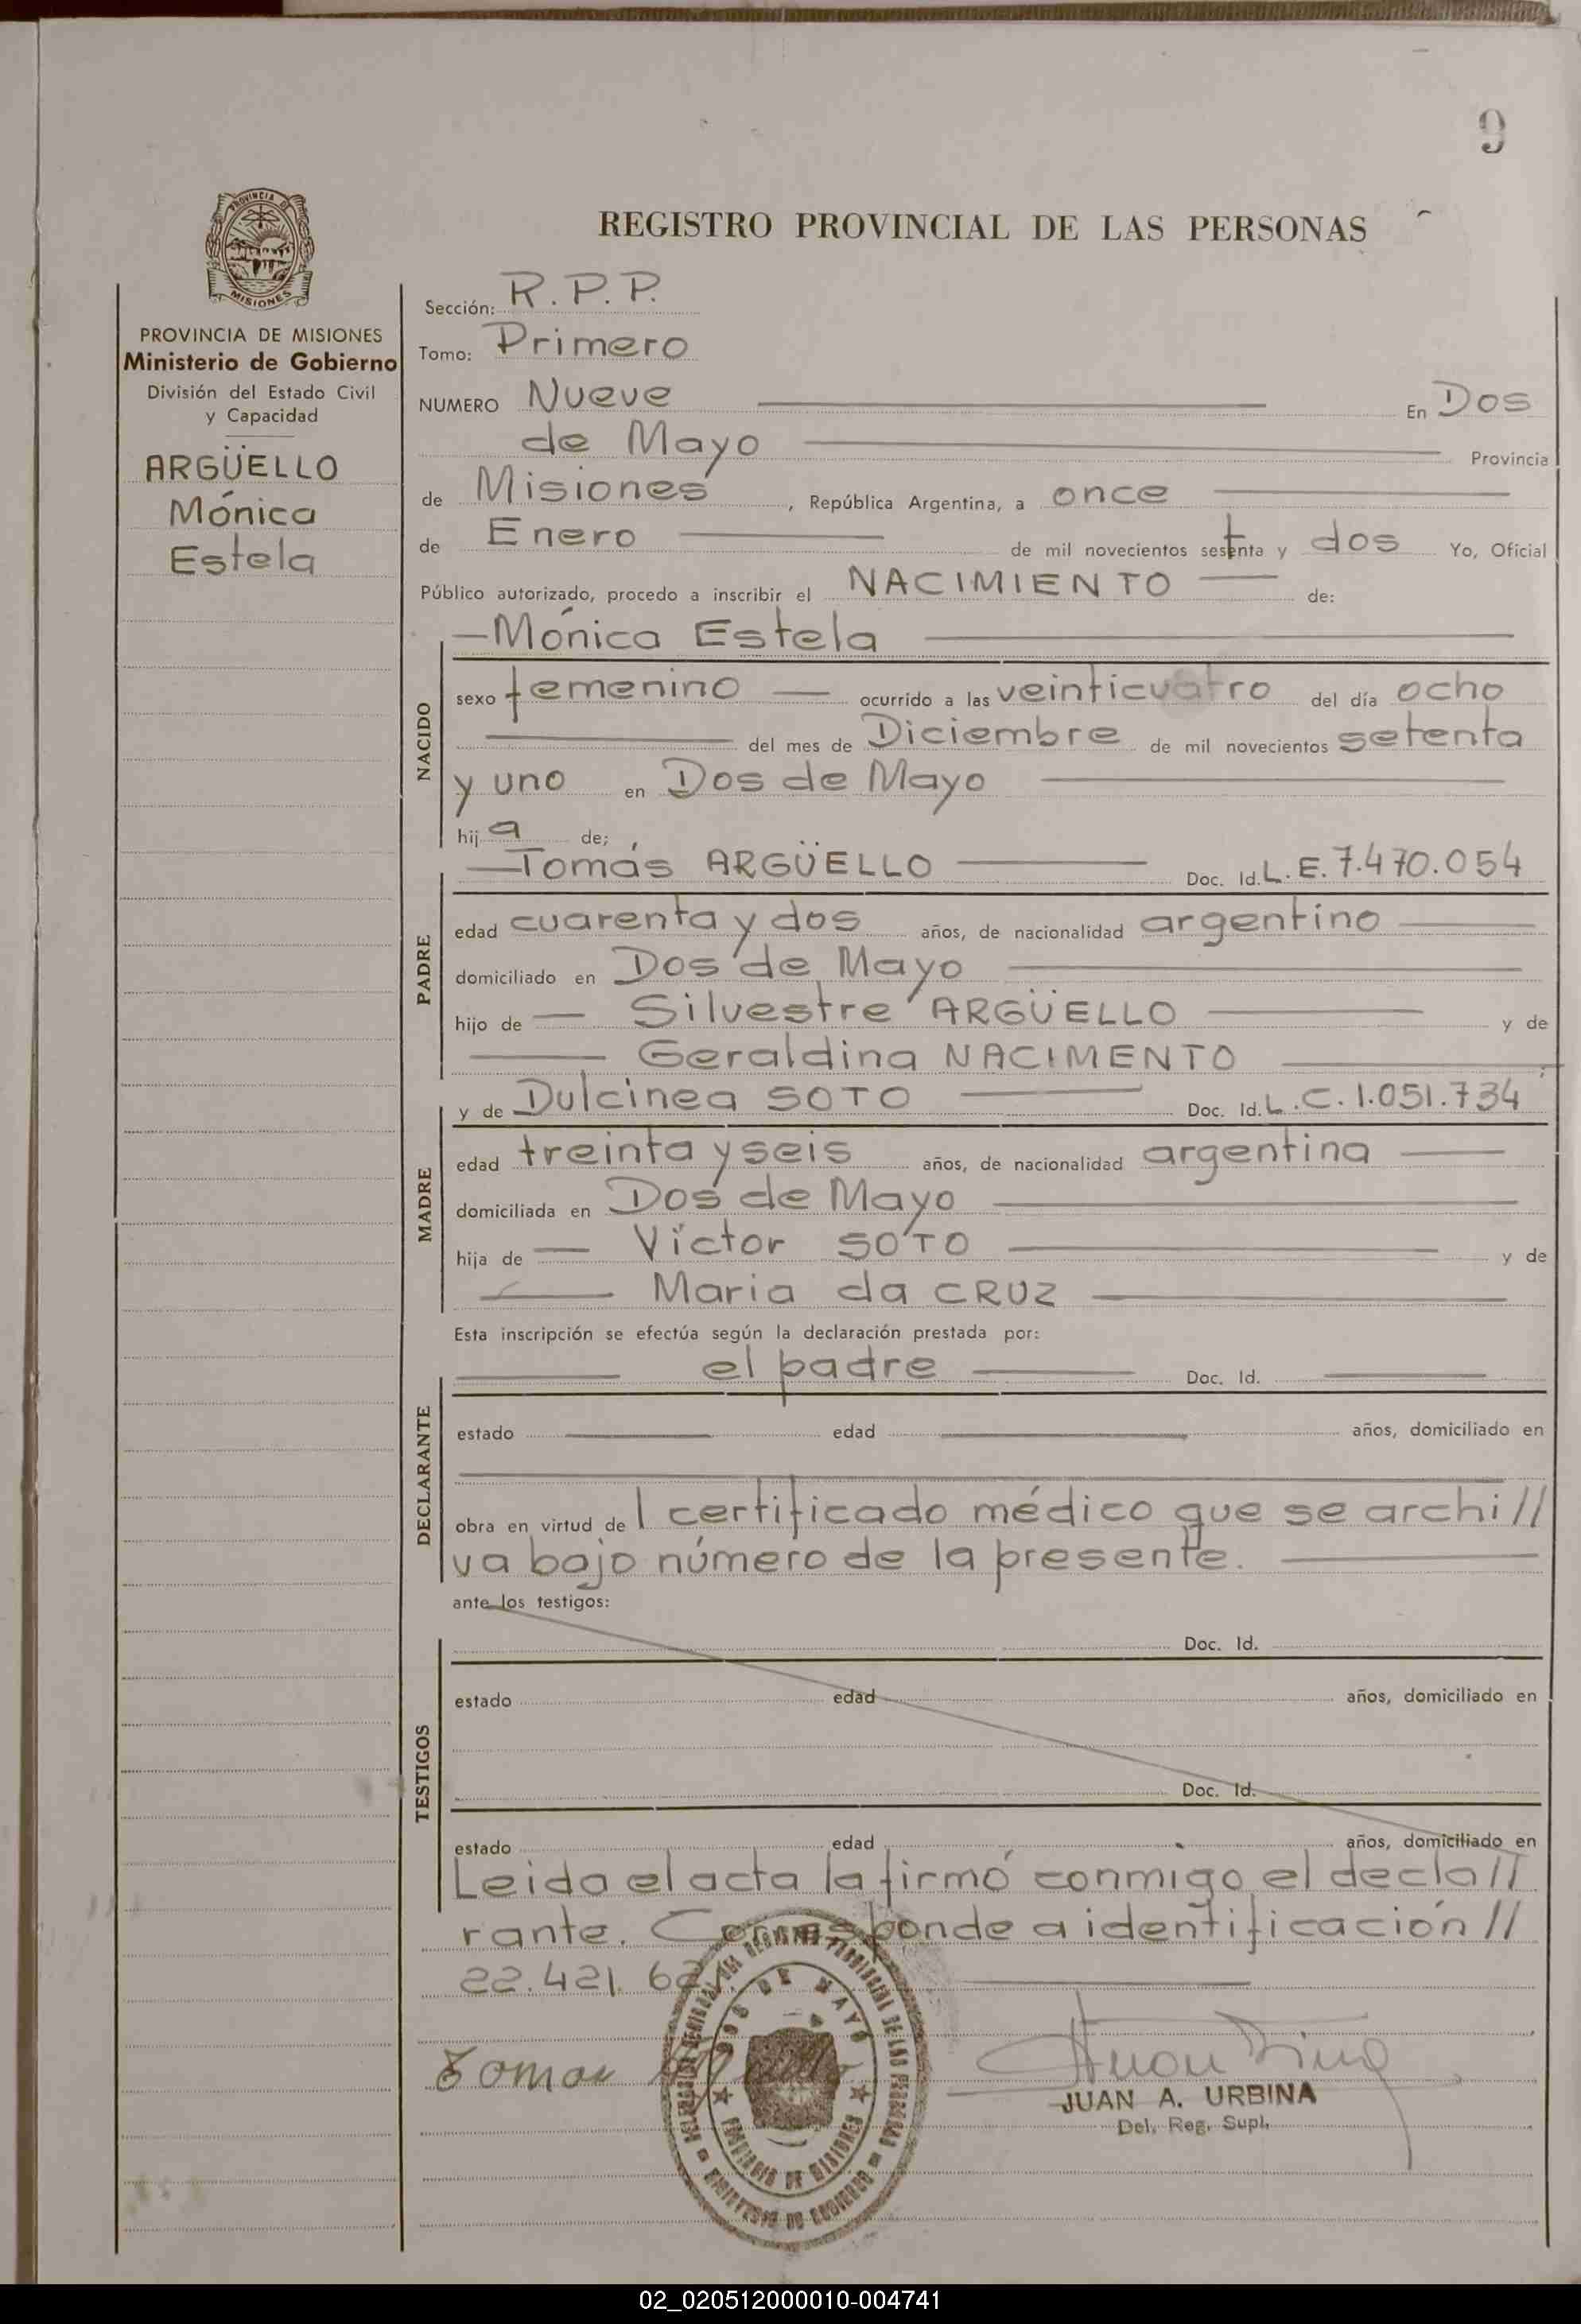 9
PROVINCIA DE
MISIONES
REGISTRO PROVINCIAL DE LAS PERSONAS
PROVINCIA DE MISIONES
Ministerio de Gobierno
División del Estado Civil
y Capacidad
ARGÜELLO
Mónica
Estela
Sección: R.P.P.
Tomo: Primero
NUMERO Nueve En Dos
de Mayo Provincia
de Misiones, República Argentina, a once
de Enero de mil novecientos setenta y dos Yo, Oficial
Público autorizado, procedo a inscribir el NACIMIENTO de:
NACIDO
—Mónica Estela
sexo femenino ocurrido a las veinticuatro del día ocho
del mes de Diciembre de mil novecientos setenta
y uno en Dos de Mayo
hija de;
PADRE
—Tomás ARGÜELLO Doc. Id. L.E. 7.470.054
edad cuarenta y dos años, de nacionalidad argentino
domiciliado en Dos de Mayo
hijo de — Silvestre ARGÜELLO y de
Geraldina NACIMENTO
MADRE
y de Dulcinea SOTO Doc. Id. L.C. 1.051.734
edad treinta y seis años, de nacionalidad argentina
domiciliada en Dos de Mayo
hija de — Víctor SOTO y de
Maria da CRUZ
Esta inscripción se efectúa según la declaración prestada por:
DECLARANTE
el padre Doc. Id.
estado edad años, domiciliado en
obra en virtud de l certificado médico que se archi//
va bajo número de la presente.
ante los testigos:
TESTIGOS
Doc. Id.
estado edad años, domiciliado en
Doc. Id.
estado edad años, domiciliado en
Leido el acta la firmó conmigo el decla//
rante. Corresponde a identificación //
22.421.
DOS DE MAYO
PROVINCIA DE MISIONES
MINISTERIO DE GOBIERNO
Tomas
JUAN A. URBINA
Del. Reg. Supl.
02_020512000010-004741